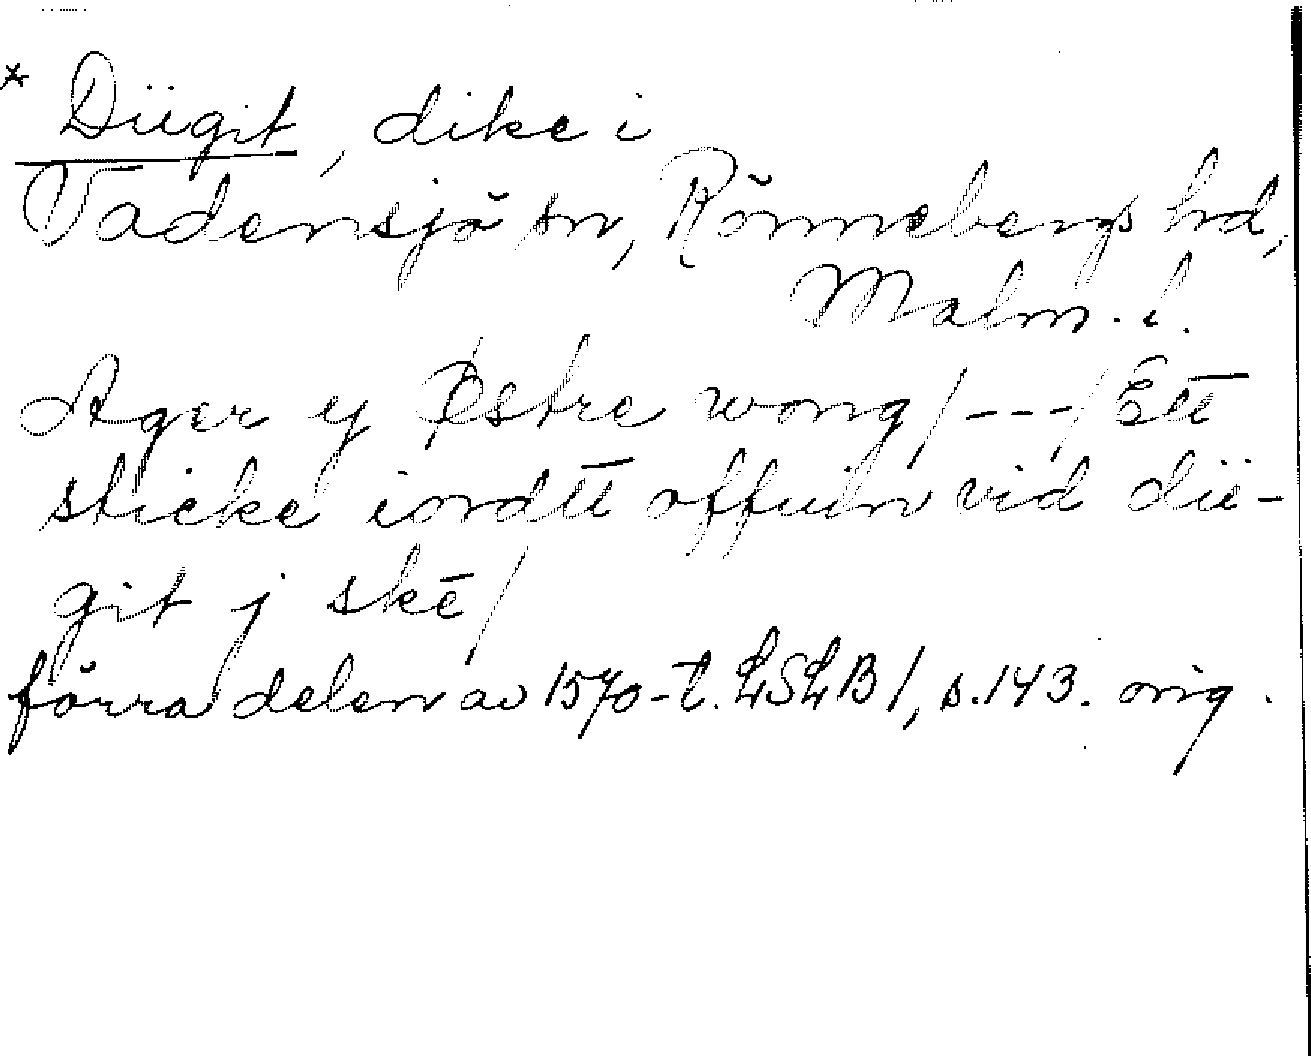 * Diigit, dike i
Vadensjö sn, Rönnebergs hd,
Malm. l.
Ager y Østre wong/---/Ett
sticke iordtt offuen vid dii-
git j skē/
förra delen av 1570-t. LSLB 1, s.143. orig.